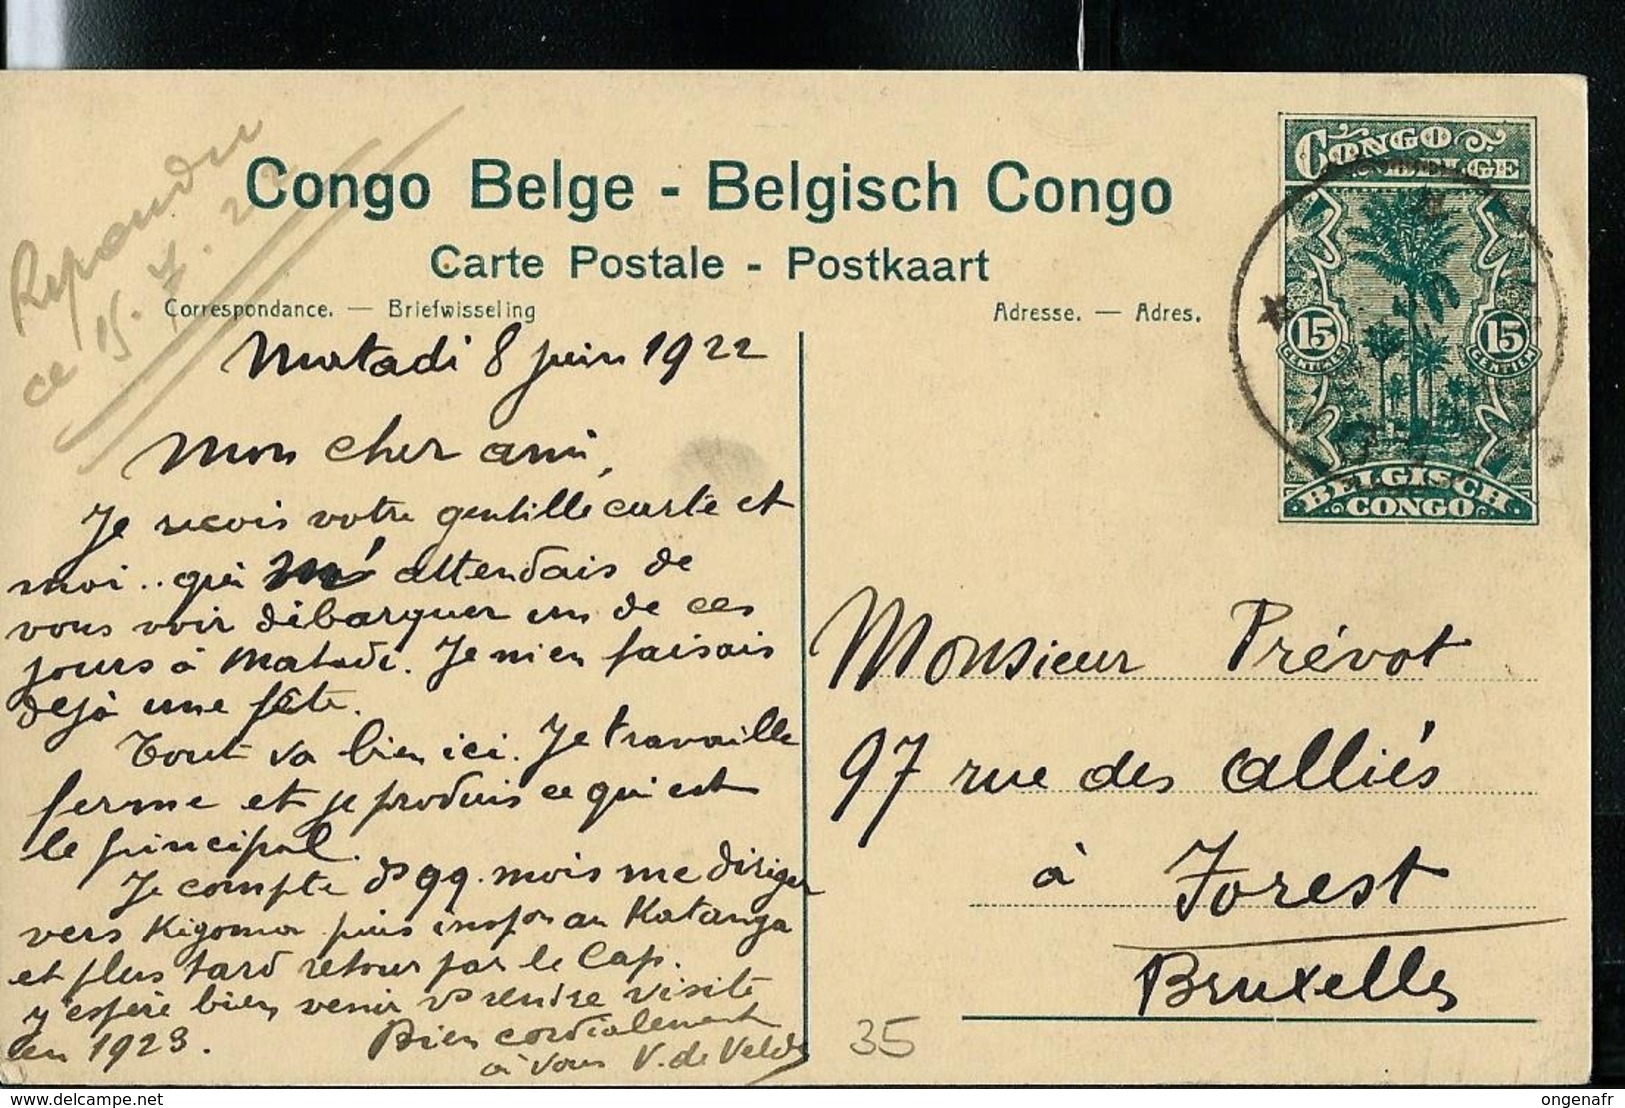 Répondu
ce 15.7.22
Congo Belge - Belgisch Congo
Carte Postale - Postkaart
Correspondance. — Briefwisseling
Adresse. — Adres.
CONGO
BELGE
15
CENTIMES
15
CENTIEM
BELGISCH
CONGO
Matadi 8 juin 1922
Mon cher ami,
Je reçois votre gentille carte et
moi .. qui m'attendais de
vous voir débarquer un de ces
jours à Matadi. Je m'en faisais
déjà une fête.
Tout va bien ici. Je travaille
ferme et je produis ce qui est
le principal.
Je compte ds qq. mois me diriger
vers Kigoma puis inspon au Katanga
et plus tard retour par le Cap.
J'espère bien venir vs rendre visite
en 1923.
Bien cordialement
à vous V. de Velde
Monsieur Prévot
97 rue des alliés
à Forest
Bruxelles
35
ongenafr